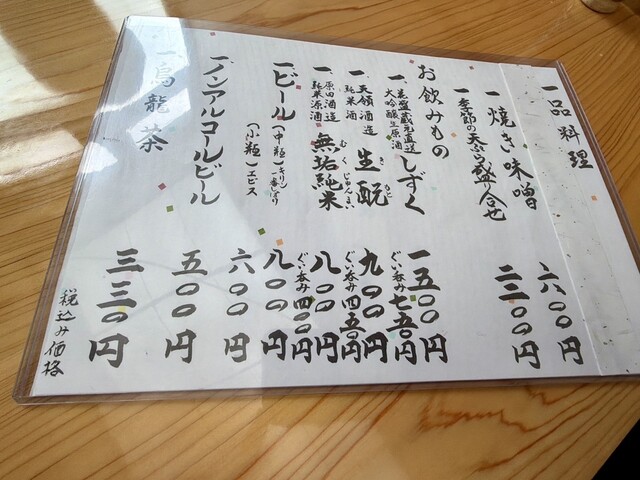 一品料理
一 焼き味噌 六〇〇円
一 季節の天ぷら盛り合せ 二二〇〇円
お飲みもの
一 老盛蔵元直送 大吟醸生原酒 しずく 一五〇〇円
ぐい呑み 七五〇円
一 天領酒造 純米酒 生酛 きもと 九〇〇円
ぐい呑み 四五〇円
一 原田酒造 純米原酒 無垢純米 むくじゅんまい 八〇〇円
ぐい呑み 四〇〇円
一 ビール (中瓶) キリン一番しぼり 八〇〇円
(小瓶) エビス 六〇〇円
一 ノンアルコールビール 五〇〇円
一 烏龍茶 三三〇円
税込み価格